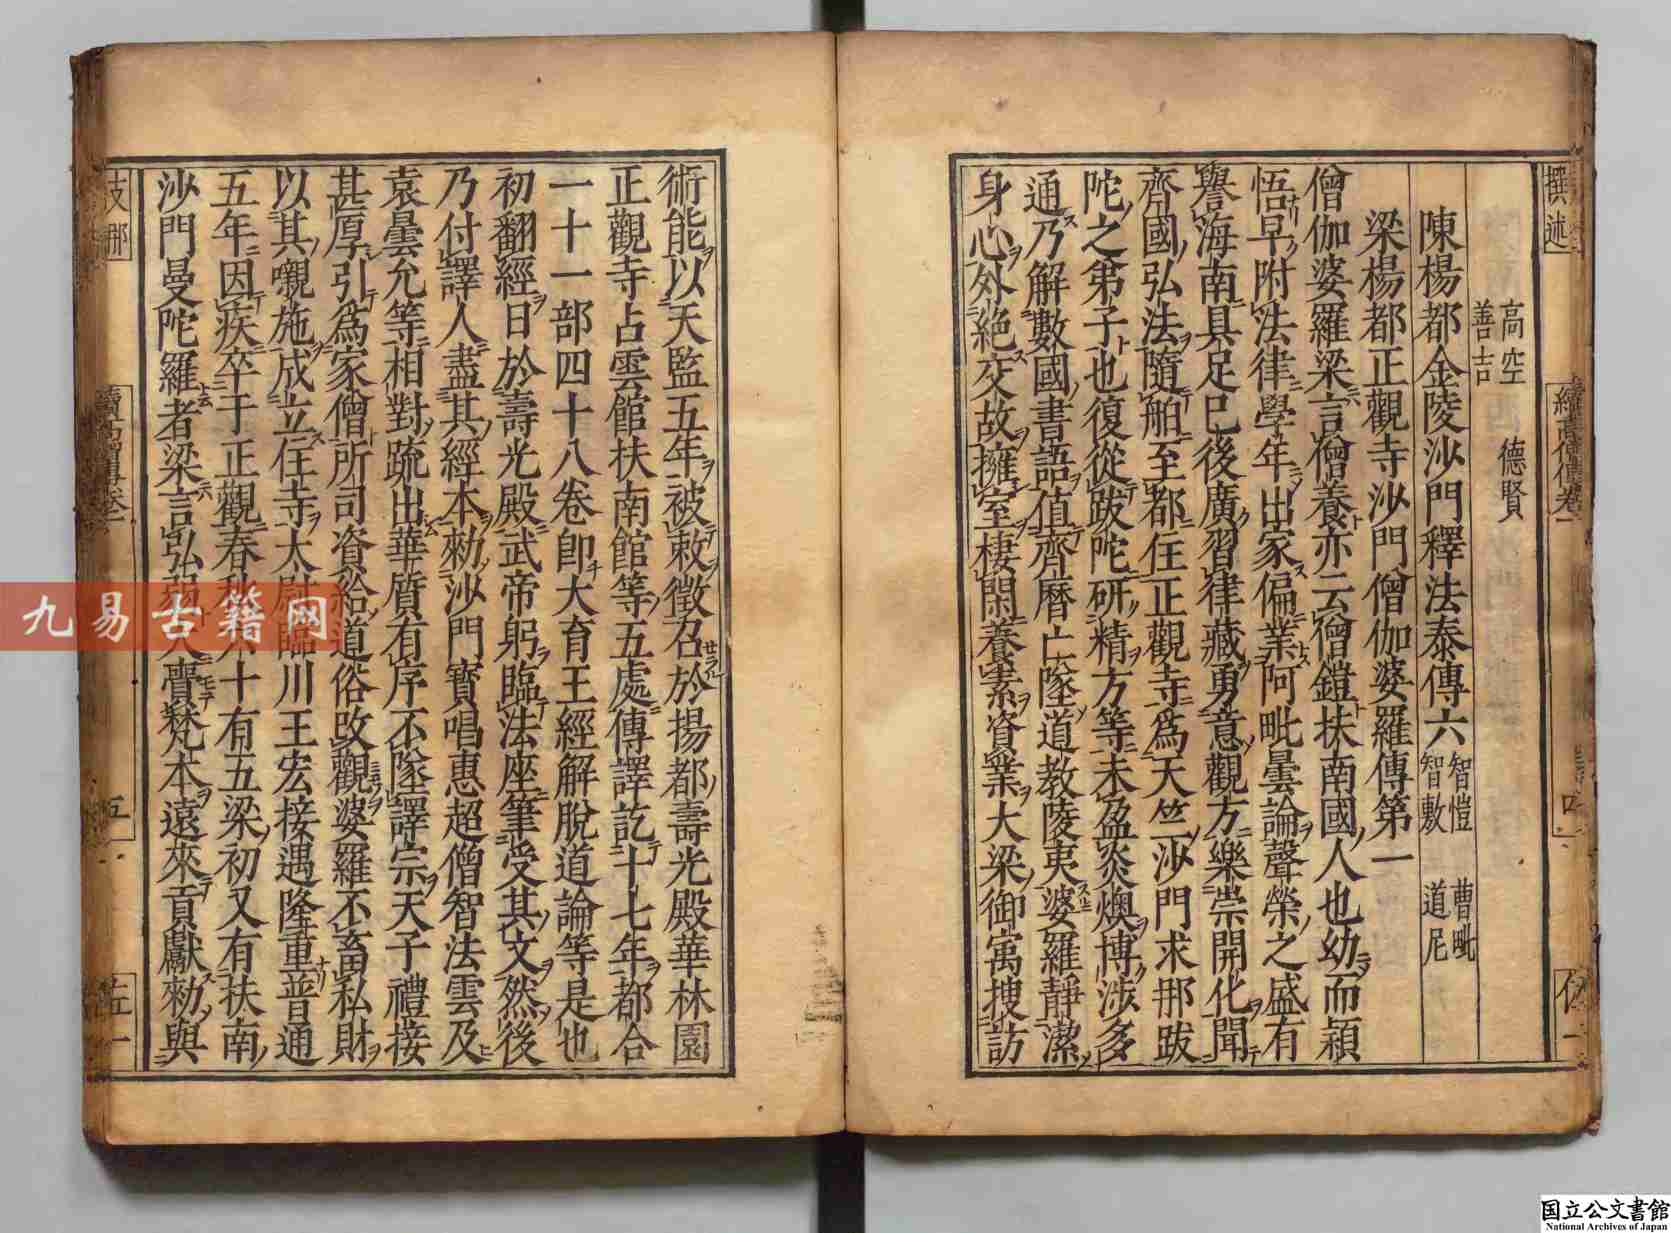 撰述
續高僧傳卷一
高空 德賢
善吉
陳楊都金陵沙門釋法泰傳六 智愷 曹毗
智敷 道尼
梁楊都正觀寺沙門僧伽婆羅傳第一
僧伽婆羅梁言僧養亦云僧鎧扶南國人也幼而穎
悟早附法律學年出家偏業阿毗曇論聲榮之盛有
譽海南具足已後廣習律藏勇意觀方樂崇開化聞
齊國弘法隨舶至都住正觀寺為天竺沙門求那跋
陀之弟子也復從跋陀研精方等未盈炎燠博涉多
通乃解數國書語值齊曆亡墜道教陵夷婆羅靜潔
身心外絕交故擁室棲閑養素資業大梁御寓搜訪
術能以天監五年被敕徵召於揚都壽光殿華林園
正觀寺占雲館扶南館等五處傳譯訖十七年都合
一十一部四十八卷即大育王經解脫道論等是也
初翻經日於壽光殿武帝躬臨法座筆受其文然後
乃付譯人盡其經本勑沙門寶唱惠超僧智法雲及
袁曇允等相對疏出華質有序不墜譯宗天子禮接
甚厚引為家僧所司資給道俗改觀婆羅不畜私財
以其嚫施成立住寺太尉臨川王宏接遇隆重普通
五年因疾卒于正觀春秋六十有五梁初又有扶南
沙門曼陀羅者梁言弘弱大齎梵本遠來貢獻勑與
支那
續高僧傳卷一
五
九易古籍网
国立公文書館
National Archives of Japan